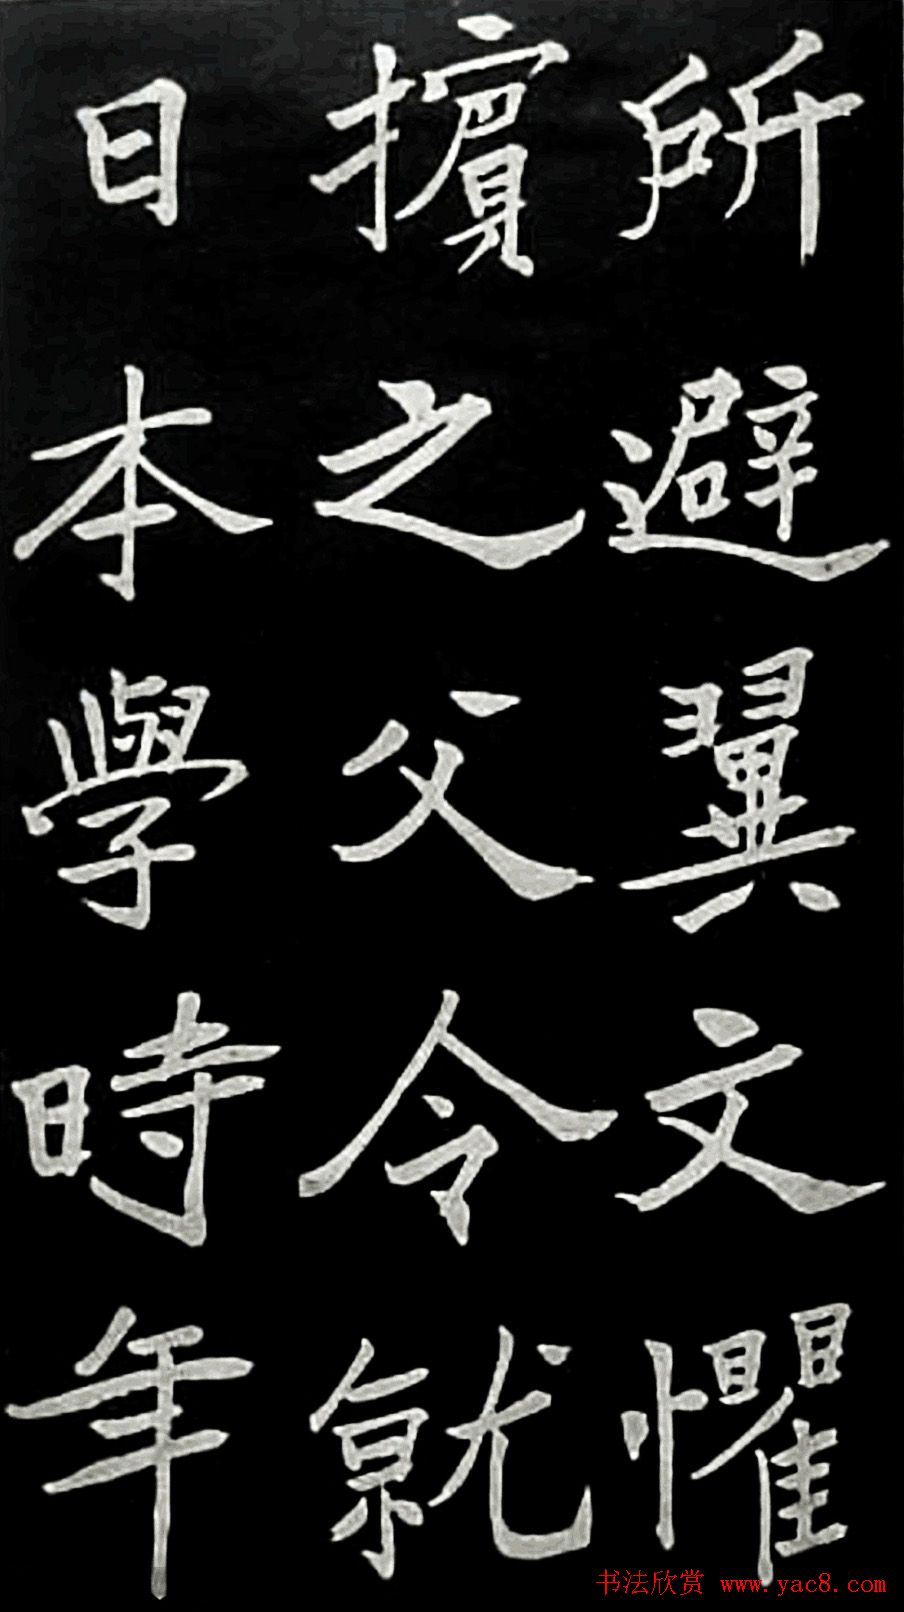 所避翼文懼
擯之父令就
日本學時年
书法欣赏 www.yac8.com